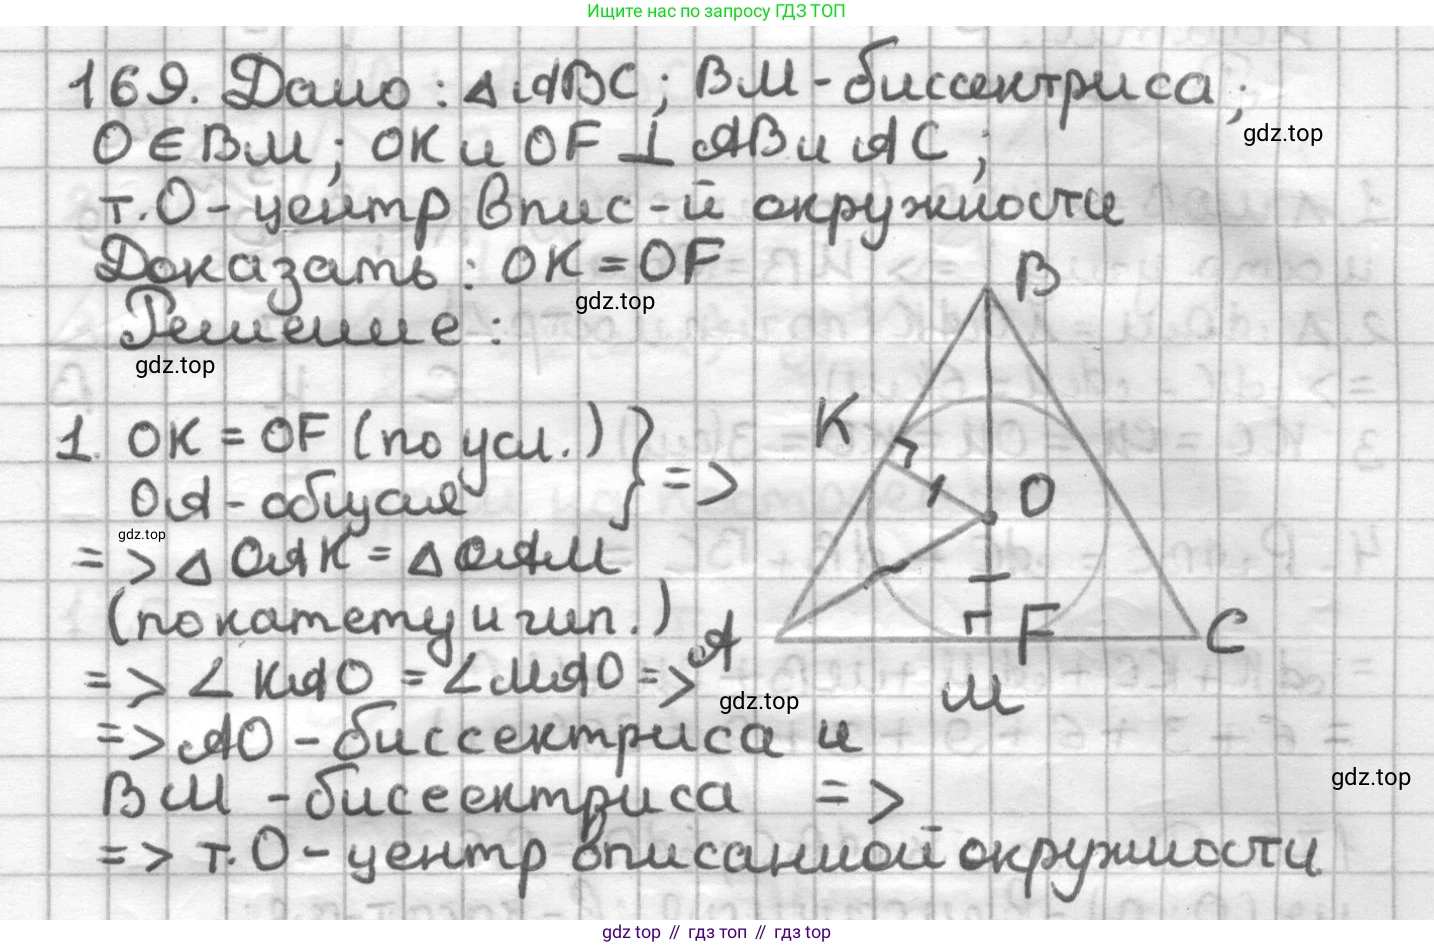 Ищите нас по запросу ГДЗ ТОП
169. Дано: △ABC; BM - биссектриса;
gdz.top
O ∈ BM; OK и OF ⊥ AB и AC;
т. O - центр впис-й окружности
Доказать: OK = OF
gdz.top
Решение:
gdz.top
B
K
O
A
F
C
M
1. OK = OF (по усл.) } =>
OA - общая
gdz.top
=> △ OAK = △ OAM
(по катету и гип.)
=> ∠ KAO = ∠ MAO =>
gdz.top
=> AO - биссектриса и
gdz.top
BM - бисеектриса =>
=> т. O - центр вписанной окружности
gdz top // гдз топ // gdz top